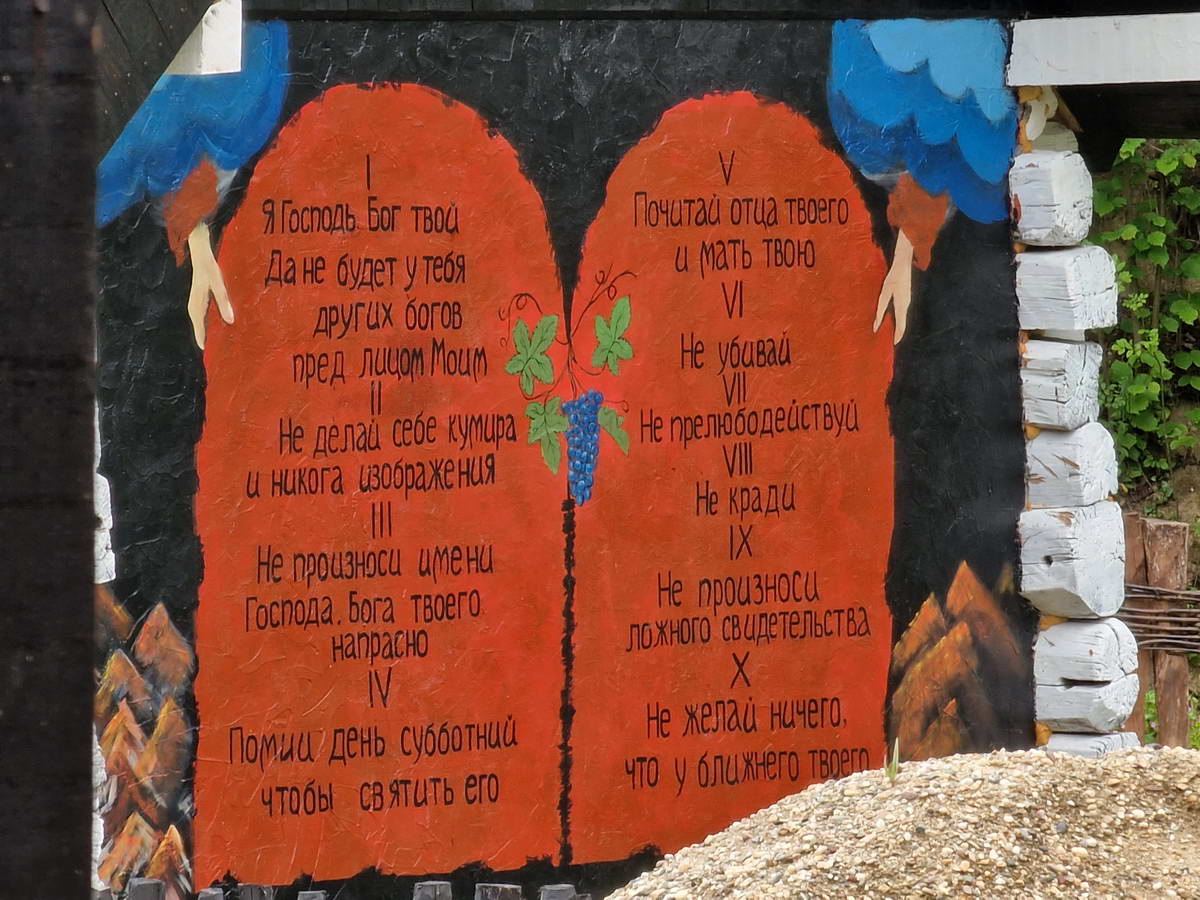 I
Я Господь Бог твой
Да не будет у тебя
других богов
пред лицом Моим
II
Не делай себе кумира
и никога изображения
III
Не произноси имени
Господа, Бога твоего
напрасно
IV
Помии день субботний
чтобы святить его
V
Почитай отца твоего
и мать твою
VI
Не убивай
VII
Не прелюбодействуй
VIII
Не кради
IX
Не произноси
ложного свидетельства
X
Не желай ничего,
что у ближнего твоего